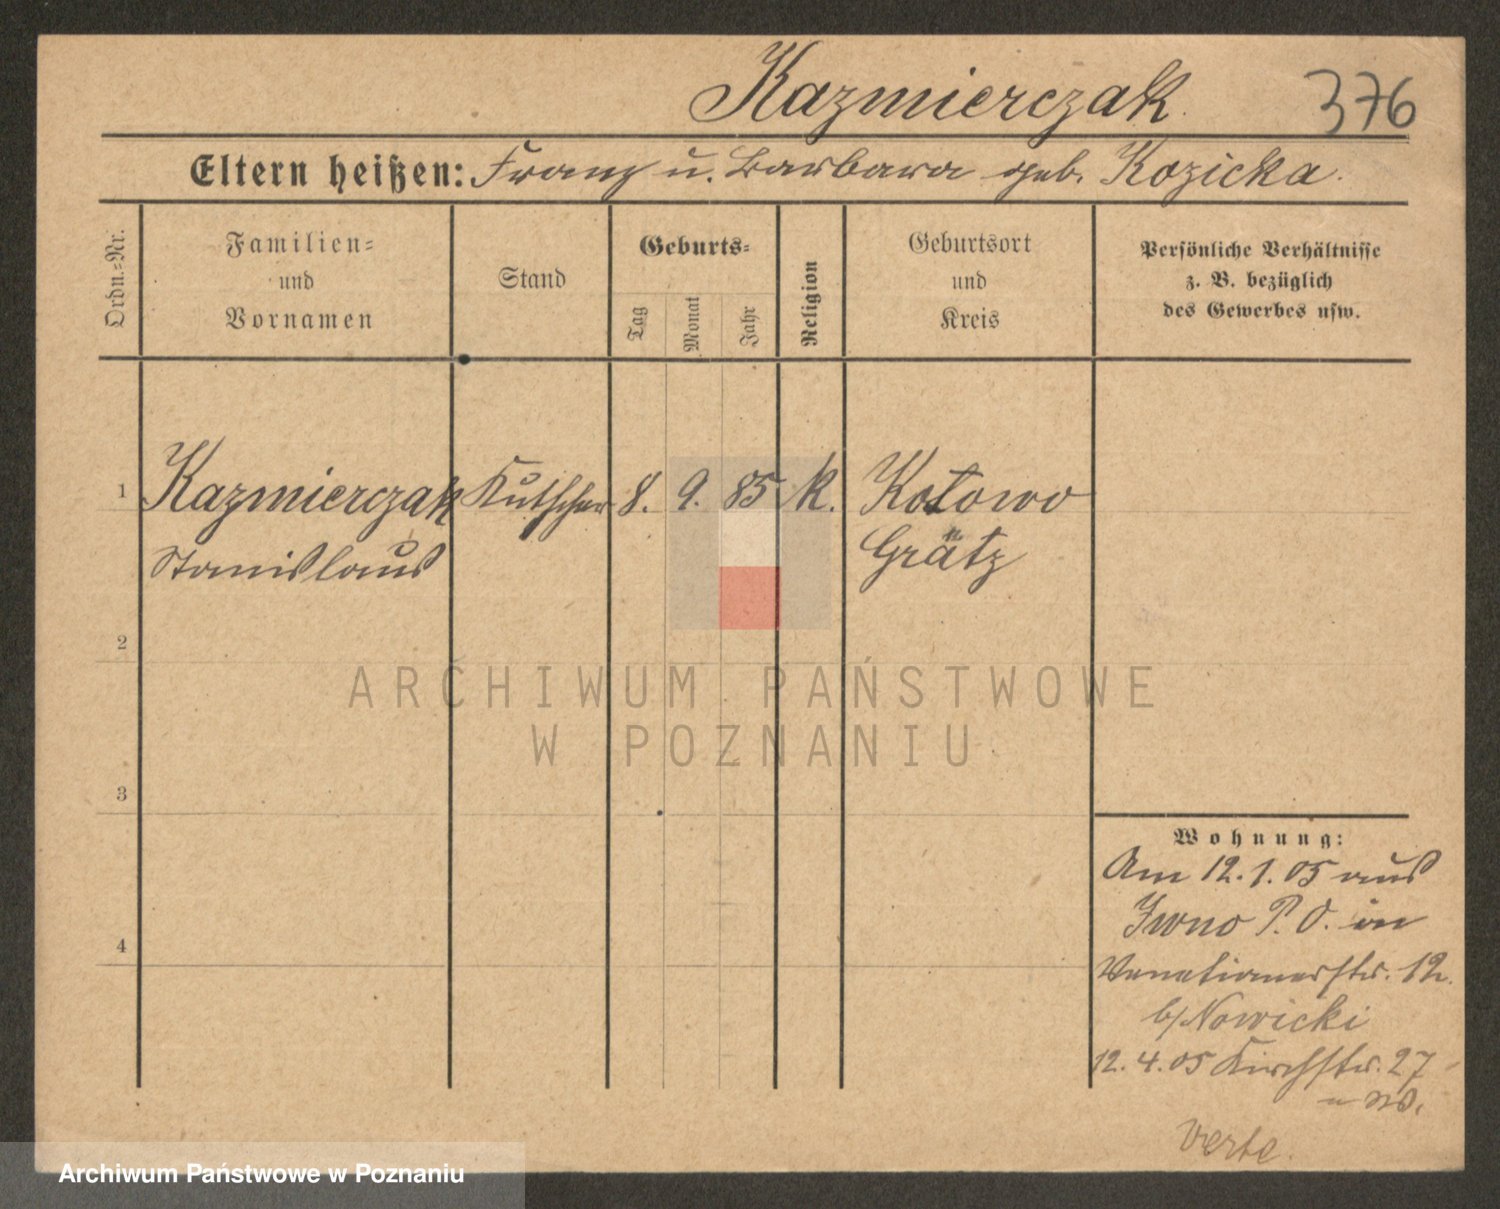 Kazmierczak
376
Eltern heißen: Franz u. Barbara geb. Kozicka.
Ordn.-Nr.
Familien-
und
Vornamen
Stand
Geburts-
Tag
Monat
Jahr
Religion
Geburtsort
und
Kreis
Persönliche Verhältnisse
z. B. bezüglich
des Gewerbes usw.
1 Kazmierczak Kutscher 8. 9. 85 k. Kotowo
Stanislaus Grätz
2
ARCHIWUM PAŃSTWOWE
W POZNANIU
3
Wohnung:
Am 12.1.05 aus
Iwno P. O. in
Venetianerstr. 12.
b/Nowicki
4
12.4.05 Kirchstr. 27
verte.
Archiwum Państwowe w Poznaniu